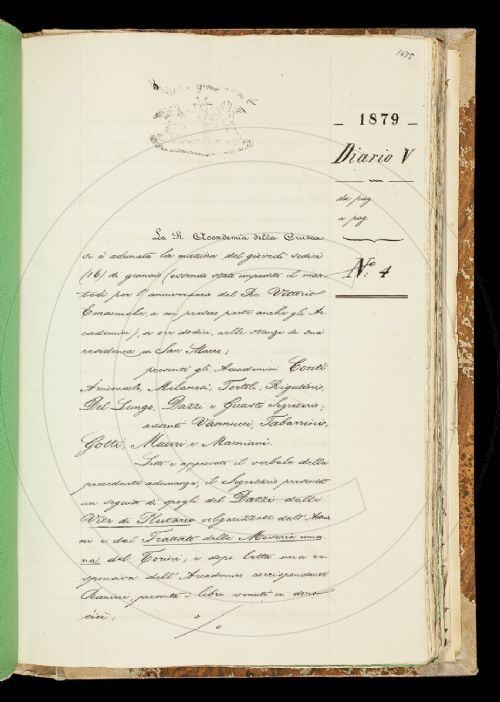 1075
– 1879 –
Diario V
da pag
a pag
N.º 4
La R. Accademia della Crusca
si è adunata la mattina del giovedì sedici
(16) di gennaio (essendo stata impedita il mar-
tedì per l'anniversario del Re Vittorio
Emanuele, a cui presero parte anche gli Ac-
cademici), a ore dodici, nelle stanze di sua
residenza, in San Marco;
presenti gli Accademici Conti
Arciconsolo, Milanesi, Tortoli, Rigutini,
Del Lungo, Dazzi e Guasti Segretario;
assenti Vannucci, Tabarrini,
Gotti, Mauri e Mamiani.
Letto e approvato il verbale della
precedente adunanza, il Segretario presenta
un seguito di spogli del Dazzi dalle
Vite di Plutarco volgarizzate dall'Adria-
ni e dal Trattato della Miseria uma-
na del Torini; e dopo letta una re-
sponsiva dell'Accademico corrispondente
Ranieri, presenta i libri venuti in dono
cioè: